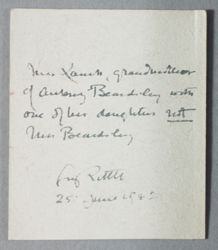 Mrs Lamb, grandmother
of Aubrey Beardsley with
one of her daughters not
Mrs Beardsley
25 June